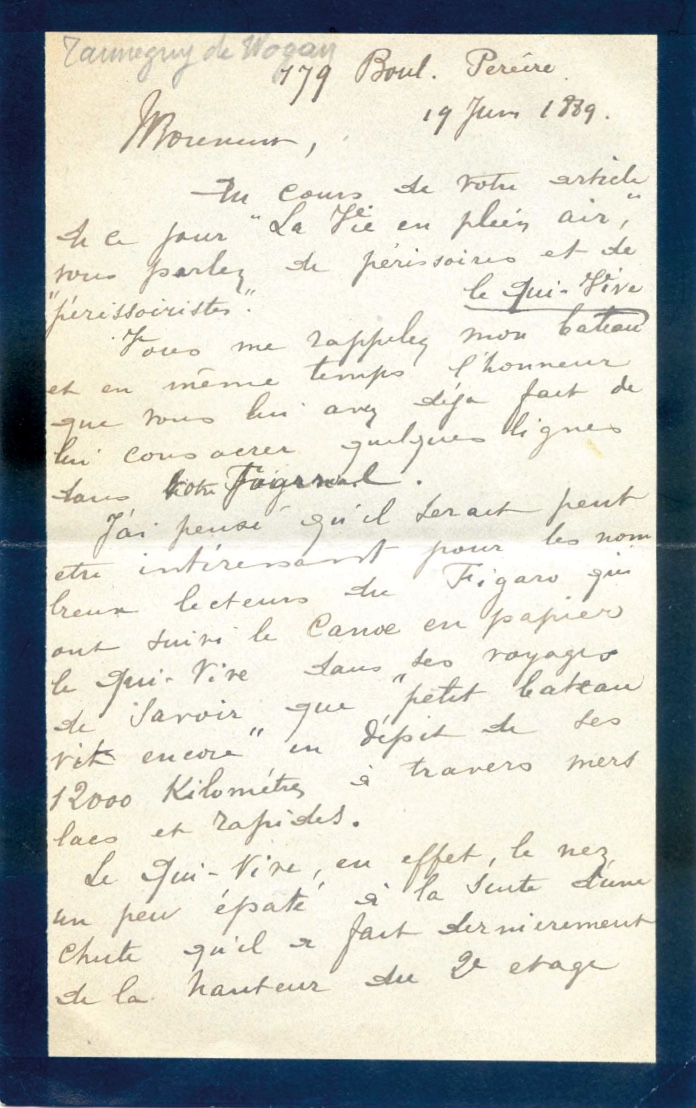 Tanneguy de Wogan
179 Boul. Pereire.
19 Juin 1889.
Monsieur,
Au cours de votre article
de ce jour "La Vie en plein air,"
vous parlez de périssoires et de
"périssoiristes".
le Qui-Vive
Vous me rappelez mon bateau
et en même temps l'honneur
que vous lui avez déja fait de
lui consacrer quelques lignes
dans votre Journal.
J'ai pensé qu'il serait peut
etre intéressant pour les nom
breux lecteurs du Figaro qui
ont suivi le Canoe en papier
le Qui-Vive dans ses voyages
de savoir que "petit bateau
vit encore" en dépit de ses
12000 Kilométres à travers mers
lacs et rapides.
Le Qui-Vive, en effet, le nez
un peu épaté à la suite d'une
chute qu'il a fait dernierement
de la hauteur du 2e etage